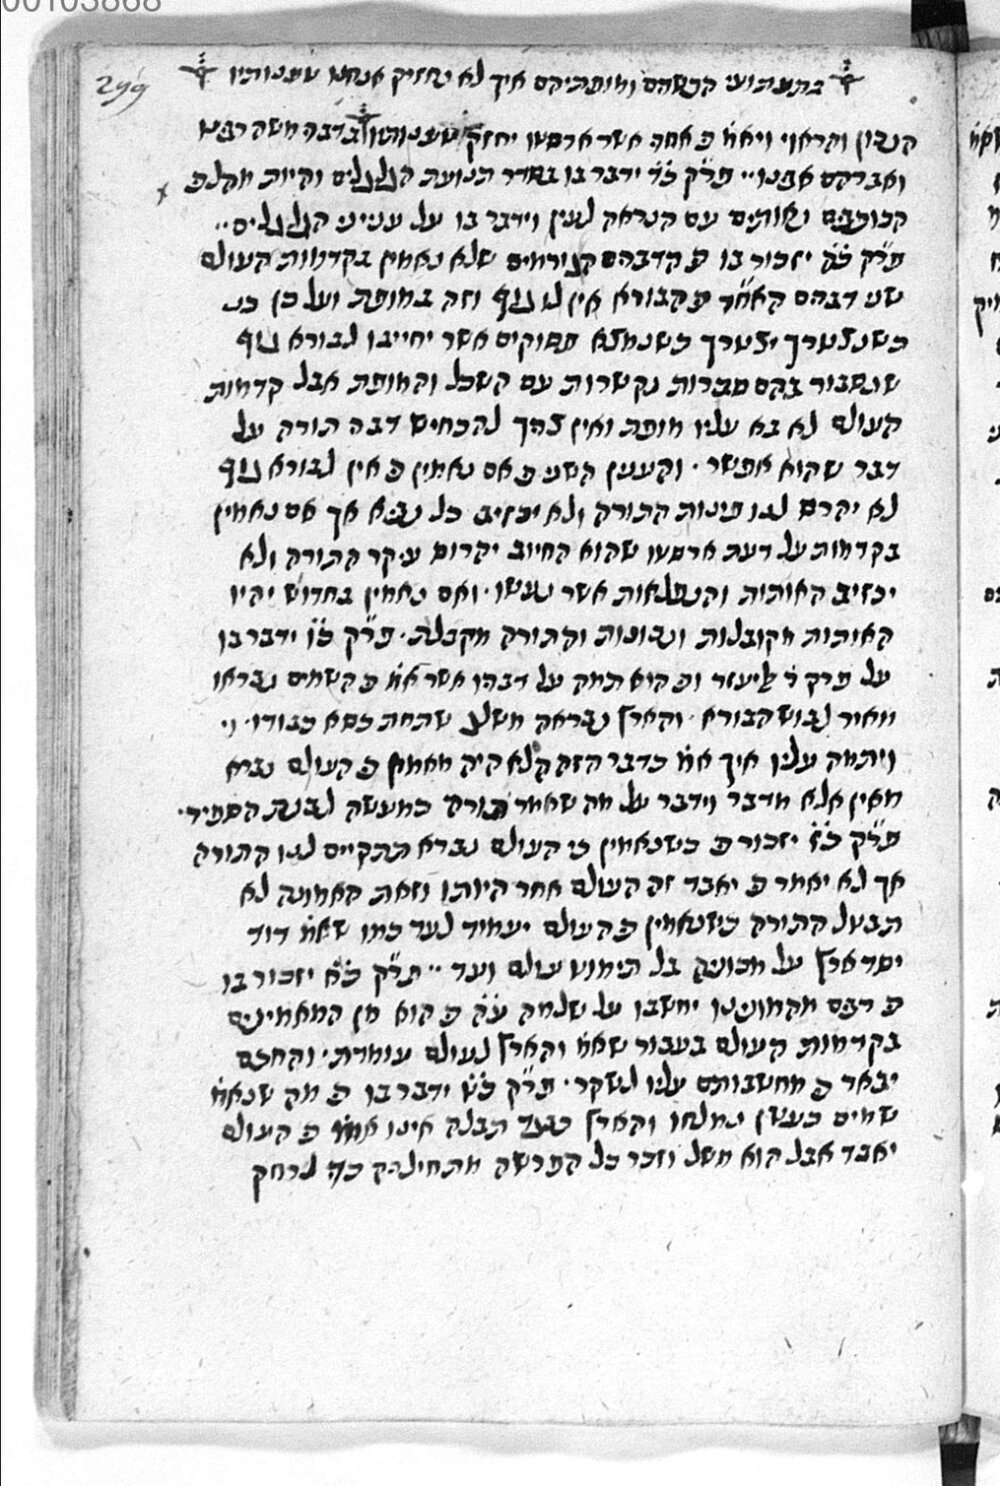 00103868
299
בתעתועי הקשהם ומופתיהם איך לא יחזיק אנחנו טענותיו
הנכון והראוי ויאמ' כי אחה אשר ארסטו יחזק טענותיו בדבה משה רבינו
ואברהם אבינו·· פר"ק כ"ד ידבר בו בסדר תנועת הגלגלים והיות מהלכ
הכוכבים נאותים עם הנראה לעין וידבר בו על עניני הגלגלים··
פר"ק כ"ה יזכור בו כי הדבהם הגורמים שלא נאמין בקדמות העולם
שני דבהם האחד כי הבורא אין לו גוף וזה במופת ועל כן כי
כשנצטרך יצטרך כשנמצא פסוקים אשר יחייבו לבורא גוף
שנסבור בהם סברות נקשרות עם השכל והמופת אבל קדמות
העולם לא בא עליו מופת ואין צהך להכחיש דבה תורה על
דבר שהוא אפשר· והענין השני כי אם נאמין כי אין לבורא גוף
לא יהרס לנו פינות התורה ולא יכזיב כל נביא אך אם נאמין
בקדמות על דעת ארסטו שהוא החיוב יהרוס עיקר התורה ולא
יכזיב האותות והנפלאות אשר נעשו· ואם נאמין בחדוש יהיו
האותות מקובלות ונכונות והתורה מקבלת· פר"ק כ"ו ידבר בו
על פרק ר' אליעזר וכי הוא תמה על דבהו אשר אמ' כי השמים נבראו
מאור לבוש הבורא· והארץ נבראה משלג שתחת כסא כבודו·
ויתמה עליו איך אמ' כדבר הזה הלא היה מאמין כי העולם נברא
מאין אלא מדבר וידבר על מה שאמר תורה כמעשה לבנת הספיר·
פר"ק כ"ז יזכור כי כשנאמין כי העולם נברא תתקיים לנו התורה
אך לא יאמר כי יאבד זה העולם אחר היותו וזאת האמונה לא
תבטל התורה כשנאמין כי העולם יעמוד לעד כמו שאמ' דוד
יסד ארץ על מכוניה בל תימוט עולם ועד·· פר"ק כ"ח יזכור בו
כי רבים מהמונינו יחשבו על שלמה ע"ה כי הוא מן המאמינים
בקדמות העולם בעבור שאמ' והארץ לעולם עומדת· והחכם
יבאר כי מחשבותם עליו לשקר· פר"ק כ"ט ידבר בו כי מה שנאמ'
שמים כעשן נמלחו והארץ כבגד תבלה אינו אומ' כי העולם
יאבד אבל הוא משל וזכר כל הפרשה מתחילה